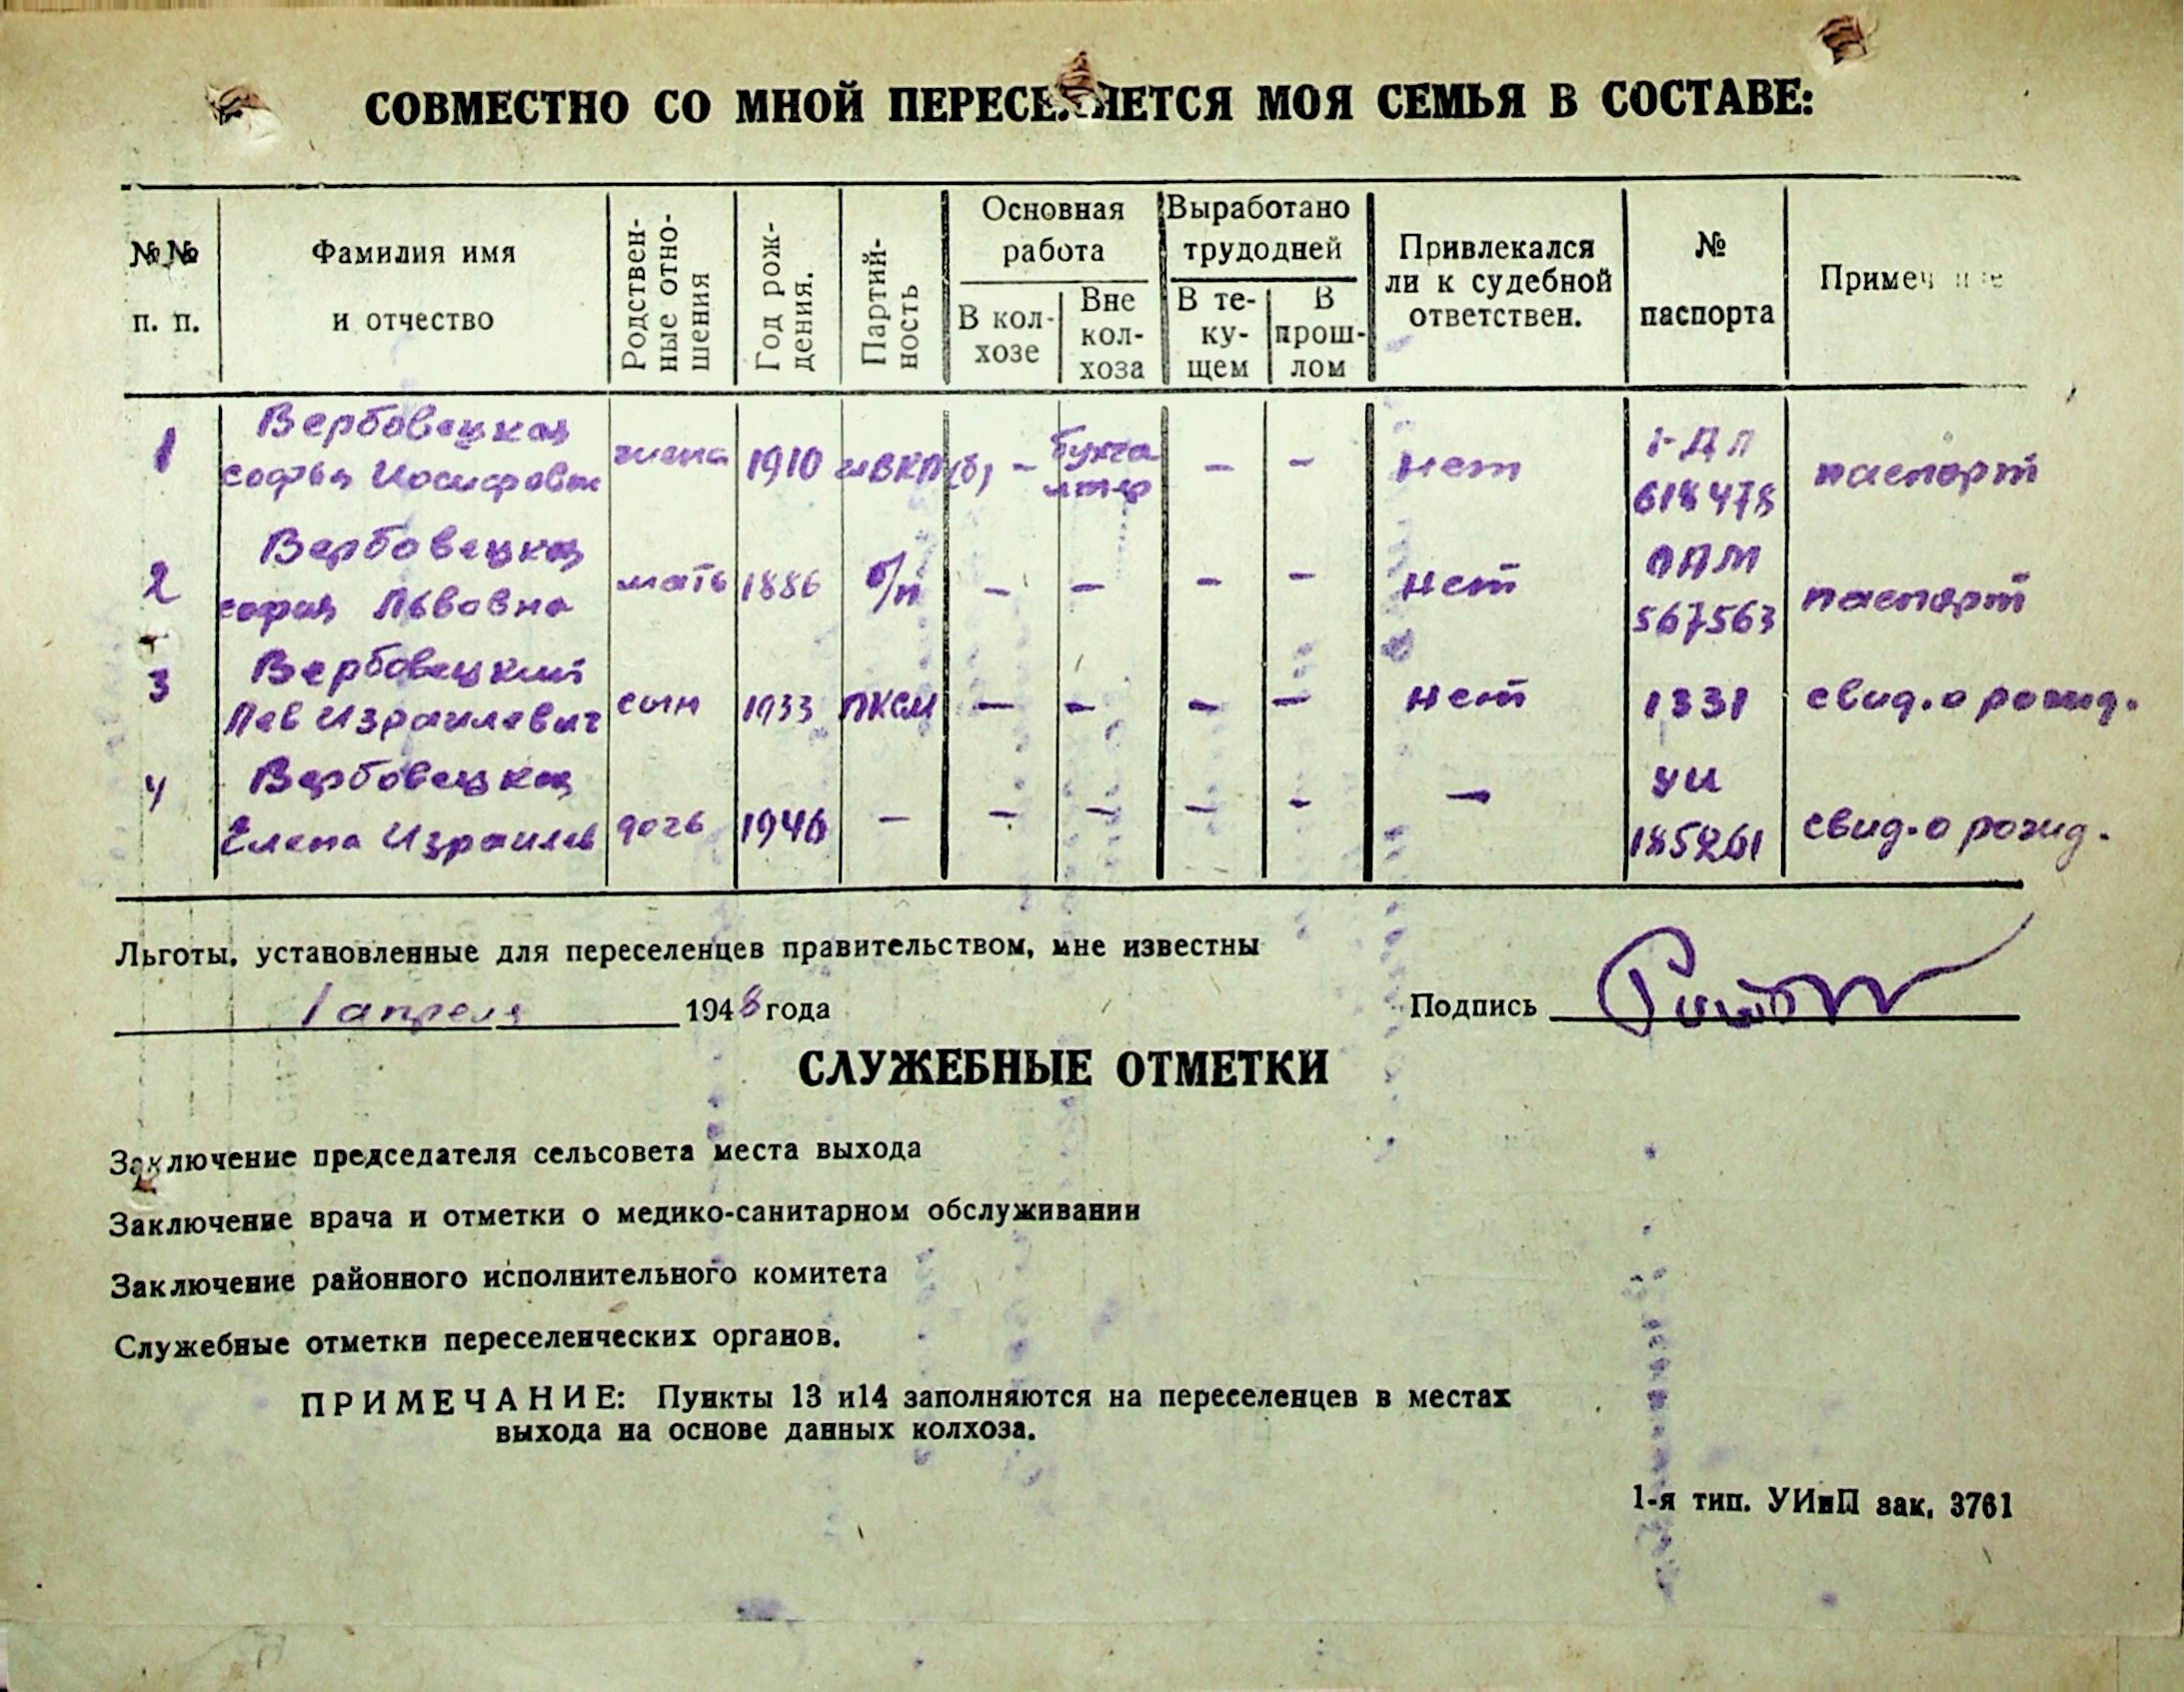 СОВМЕСТНО СО МНОЙ ПЕРЕСЕЛЯЕТСЯ МОЯ СЕМЬЯ В СОСТАВЕ:
№№ п. п.
Фамилия имя и отчество
Родствен-ные отно-шения
Год рож-дения.
Партий-ность
Основная работа
В кол-хозе
Вне кол-хоза
Выработано трудодней
В те-ку-щем
В прош-лом
Привлекался ли к судебной ответствен.
№ паспорта
Примеч
1 Вербовецкая софья Иосифовн жена 1910 чл ВКП(б) – бухгалтер – – нет 1-ДЛ 618478 паспорт
2 Вербовецкая софия Львовна мать 1886 б/п – – – – нет ОПМ 567563 паспорт
3 Вербовецкий Лев Израилевич сын 1933 ЛКСМ – – – – нет 1331 свид. о рожд.
4 Вербовецкая Елена Израилев дочь 1946 – – – – – – УИ 185261 свид. о рожд.
Льготы, установленные для переселенцев правительством, мне известны
1 апреля 1948 года
Подпись
СЛУЖЕБНЫЕ ОТМЕТКИ
Заключение председателя сельсовета места выхода
Заключение врача и отметки о медико-санитарном обслуживании
Заключение районного исполнительного комитета
Служебные отметки переселенческих органов.
ПРИМЕЧАНИЕ: Пункты 13 и14 заполняются на переселенцев в местах
выхода на основе данных колхоза.
1-я тип. УИиП зак. 3761